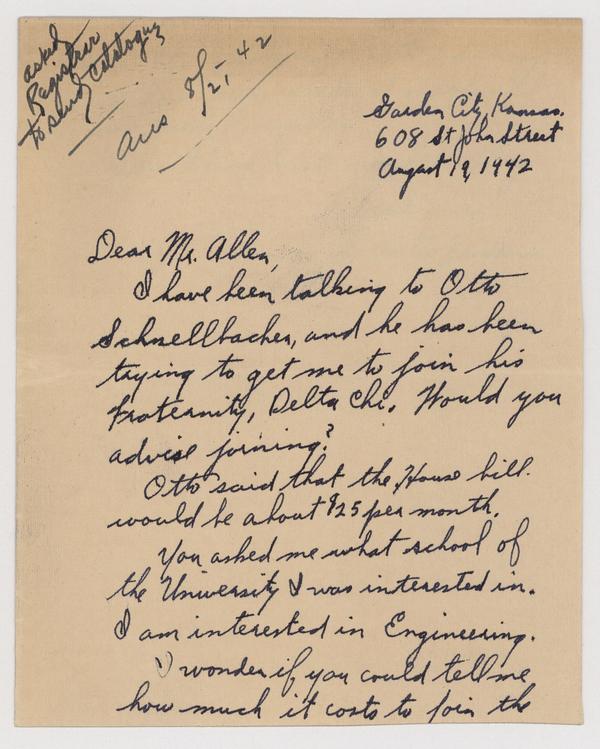 asked
Registrar
to send catalogue
ans 8/21, 42
Garden City, Kansas.
608 St John Street
August 19, 1942
Dear Mr. Allen,
I have been talking to Otto
Schnellbacher, and he has been
trying to get me to join his
fraternity, Delta Chi. Would you
advise joining?
Otto said that the House bill
would be about $25 per month.
You asked me what school of
the University I was interested in.
I am interested in Engineering.
I wonder if you could tell me
how much it costs to join the